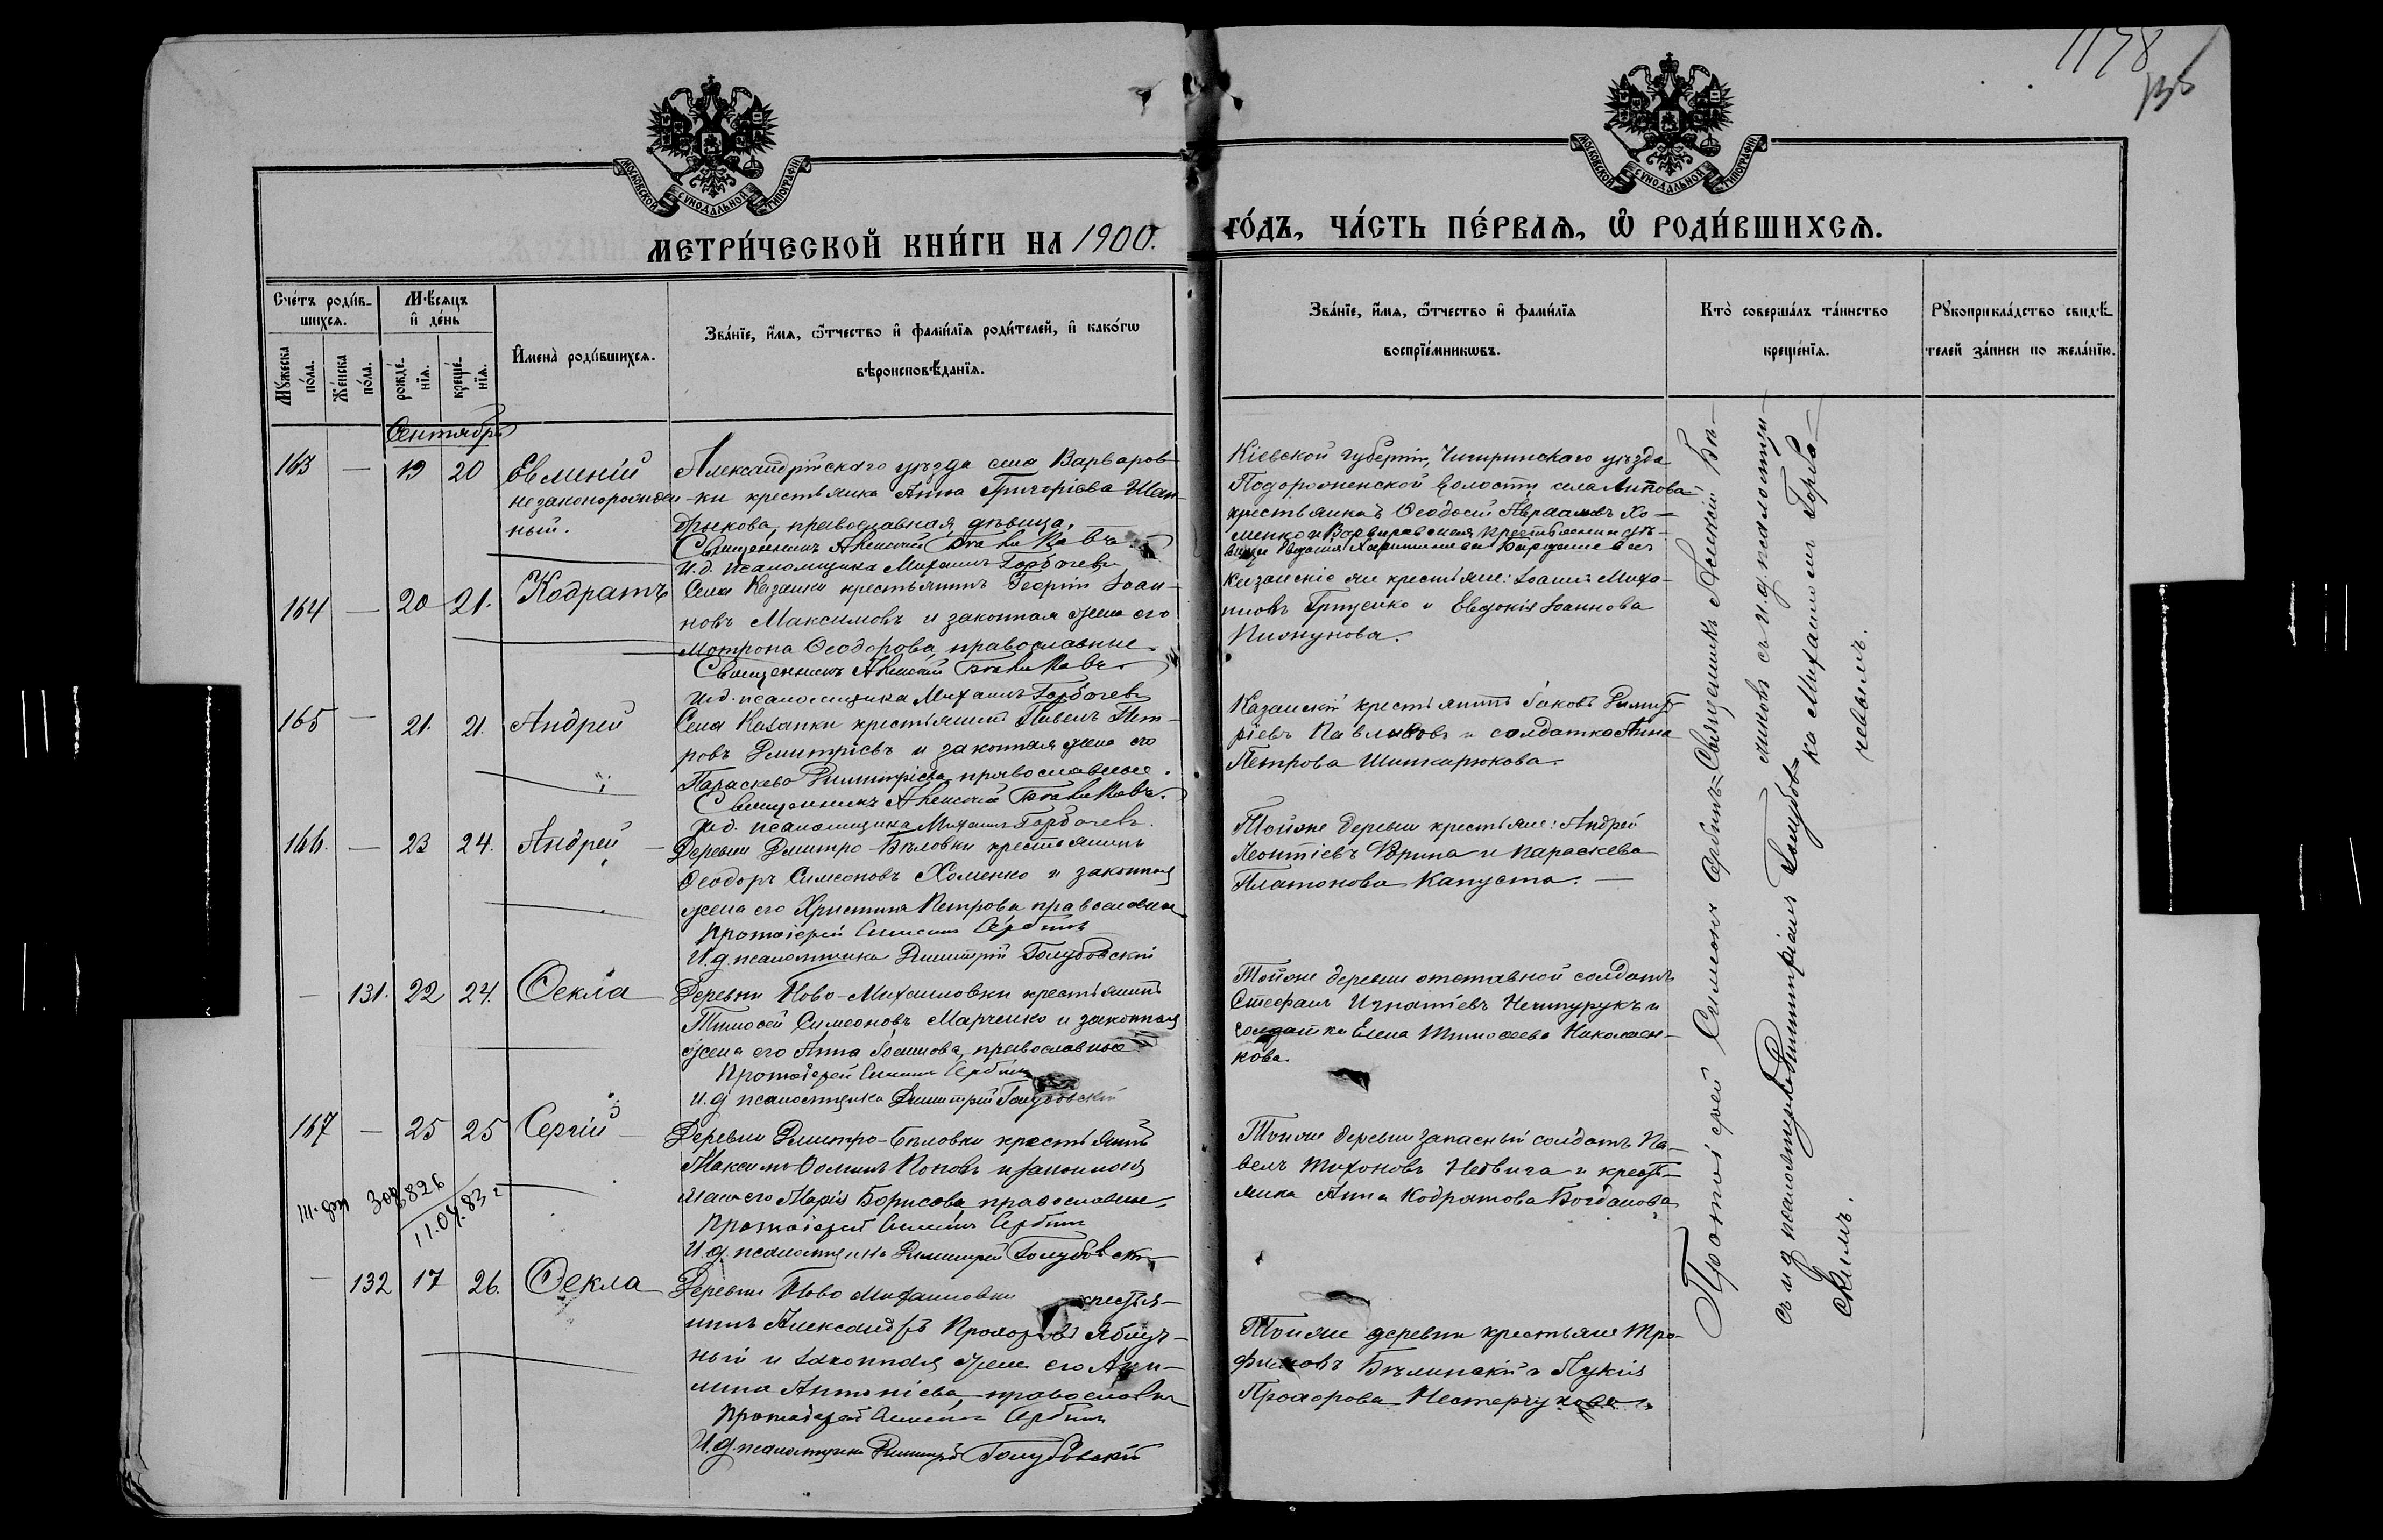 1178
МОСКОВСКОЙ СУНОДАЛЬНОЙ ТИПОГРАФІИ
МОСКОВСКОЙ СУНОДАЛЬНОЙ ТИПОГРАФІИ
МЕТРИ́ЧЕСКОЙ КНИ́ГИ НА 1900.
ГО́ДЪ, ЧА́СТЬ ПЕ́РВАѦ, Ѡ҆ РОДИ́ВШИХСѦ.
Сче́тъ роди́в-
шихсѧ.
Мꙋ́жеска по́ла.
Же́нска по́ла.
Мѣ́сѧцъ
и҆ де́нь
рожде́-
нїѧ.
креще́-
нїѧ.
И҆мена̀ роди́вшихсѧ.
Зва́нїе, и҆́мѧ, ѻ҆́тчество и҆ фами́лїѧ роди́телей, и҆ како́гѡ
вѣроисповѣ́данїѧ.
Зва́нїе, и҆́мѧ, ѻ҆́тчество и҆ фами́лїѧ
воспрїе́мникѡвъ.
Кто̀ соверша́лъ та́инство
креще́нїѧ.
Рꙋкоприкла́дство свидѣ́-
телей за́писи по жела́нїю.
Сентябрь
163 — 19 20 Евменій
незаконорожден-
ный.
Александрійскаго уѣзда села Варваров-
ки крестьянка Анна Григоріева Шан-
дрыкова, православная, дѣвица.
Священникъ Алексій
И.д. псаломщика Михаилъ Горбачевъ
Кіевской губерніи, Чигиринскаго уѣзда
Подорожненской волости села Липова
крестьянинъ Ѳеодосій Авраамовъ Хо-
менко и Варваровская крестьянка дѣ-
вица
164 — 20 21. Кодратъ
Села Казанки крестьянинъ Георгій Іоан-
новъ Максимовъ и законная жена его
Мотрона Ѳеодорова, православные.
Священникъ Алексій
И.д. псаломщика Михаилъ Горбачевъ
Казанскіе же крестьяне: Іоаннъ Миха-
иловъ Гриценко и Евдокія Іоаннова
165 — 21. 21. Андрей
Села Казанки крестьянинъ Павелъ Пет-
ровъ Дмитріевъ и законная жена его
Параскева Димитріева, православные.
Священникъ Алексій
И.д. псаломщика Михаилъ Горбачевъ.
Казанскій крестьянинъ Іаковъ Димит-
ріевъ Павловъ и солдатка Анна
Петрова Шинкарюкова.
166. — 23 24. Андрей
Деревни Дмитро-Бѣловки крестьянинъ
Ѳеодоръ Симеоновъ Хоменко и законная
жена его Христина Петрова православные
Протоіерей Симеонъ Сербинъ
И.д. псаломщика Димитрій Голубовскій
Тойже деревни крестьяне: Андрей
Леонтіевъ и Параскева
Платонова Капуста. —
— 131. 22 24. Ѳекла
Деревни Ново-Михайловки крестьянинъ
Тимоѳей Симеоновъ Марченко и законная
жена его Анна Іоаннова, православные
Протоіерей Симеонъ Сербинъ
И.д. псаломщика Димитрій Голубовскій
Тойже деревни отставной солдатъ
Стефанъ Игнатіевъ Нечипурукъ и
солдатка Елена Тимоѳеева Николаен-
кова.
167 — 25 25 Сергій
Деревни Дмитро-Бѣловки крестьянинъ
Максимъ Ѳоминъ Поповъ и законная
жена его Марія Борисова, православные
Протоіерей Симеонъ Сербинъ
И.д. псаломщика Димитрій Голубовскій
Тойже деревни запасный солдатъ Па-
велъ Тихоновъ и кресть-
янка Анна Кодратова Богданова
826
11.04.83 г
— 132 17 26. Ѳекла
Деревни Ново Михайловки крестья-
нинъ Александръ Прохоровъ Яблуч-
ный и законная жена его Аки-
лина Антоніева, православные
Протоіерей Симеонъ Сербинъ
И.д. псаломщика Димитрій Голубовскій
Тойже деревни крестьяне Тро-
фимовъ Бѣлинскій и Лукія
Прохорова Нестерчукова.
Протоіерей Симеонъ Сербинъ
съ и.д. псаломщика Димитріемъ Голубов-
скимъ.
Священникъ Алексій
съ и.д. псаломщи-
ка Михаиломъ Горба-
чевымъ.